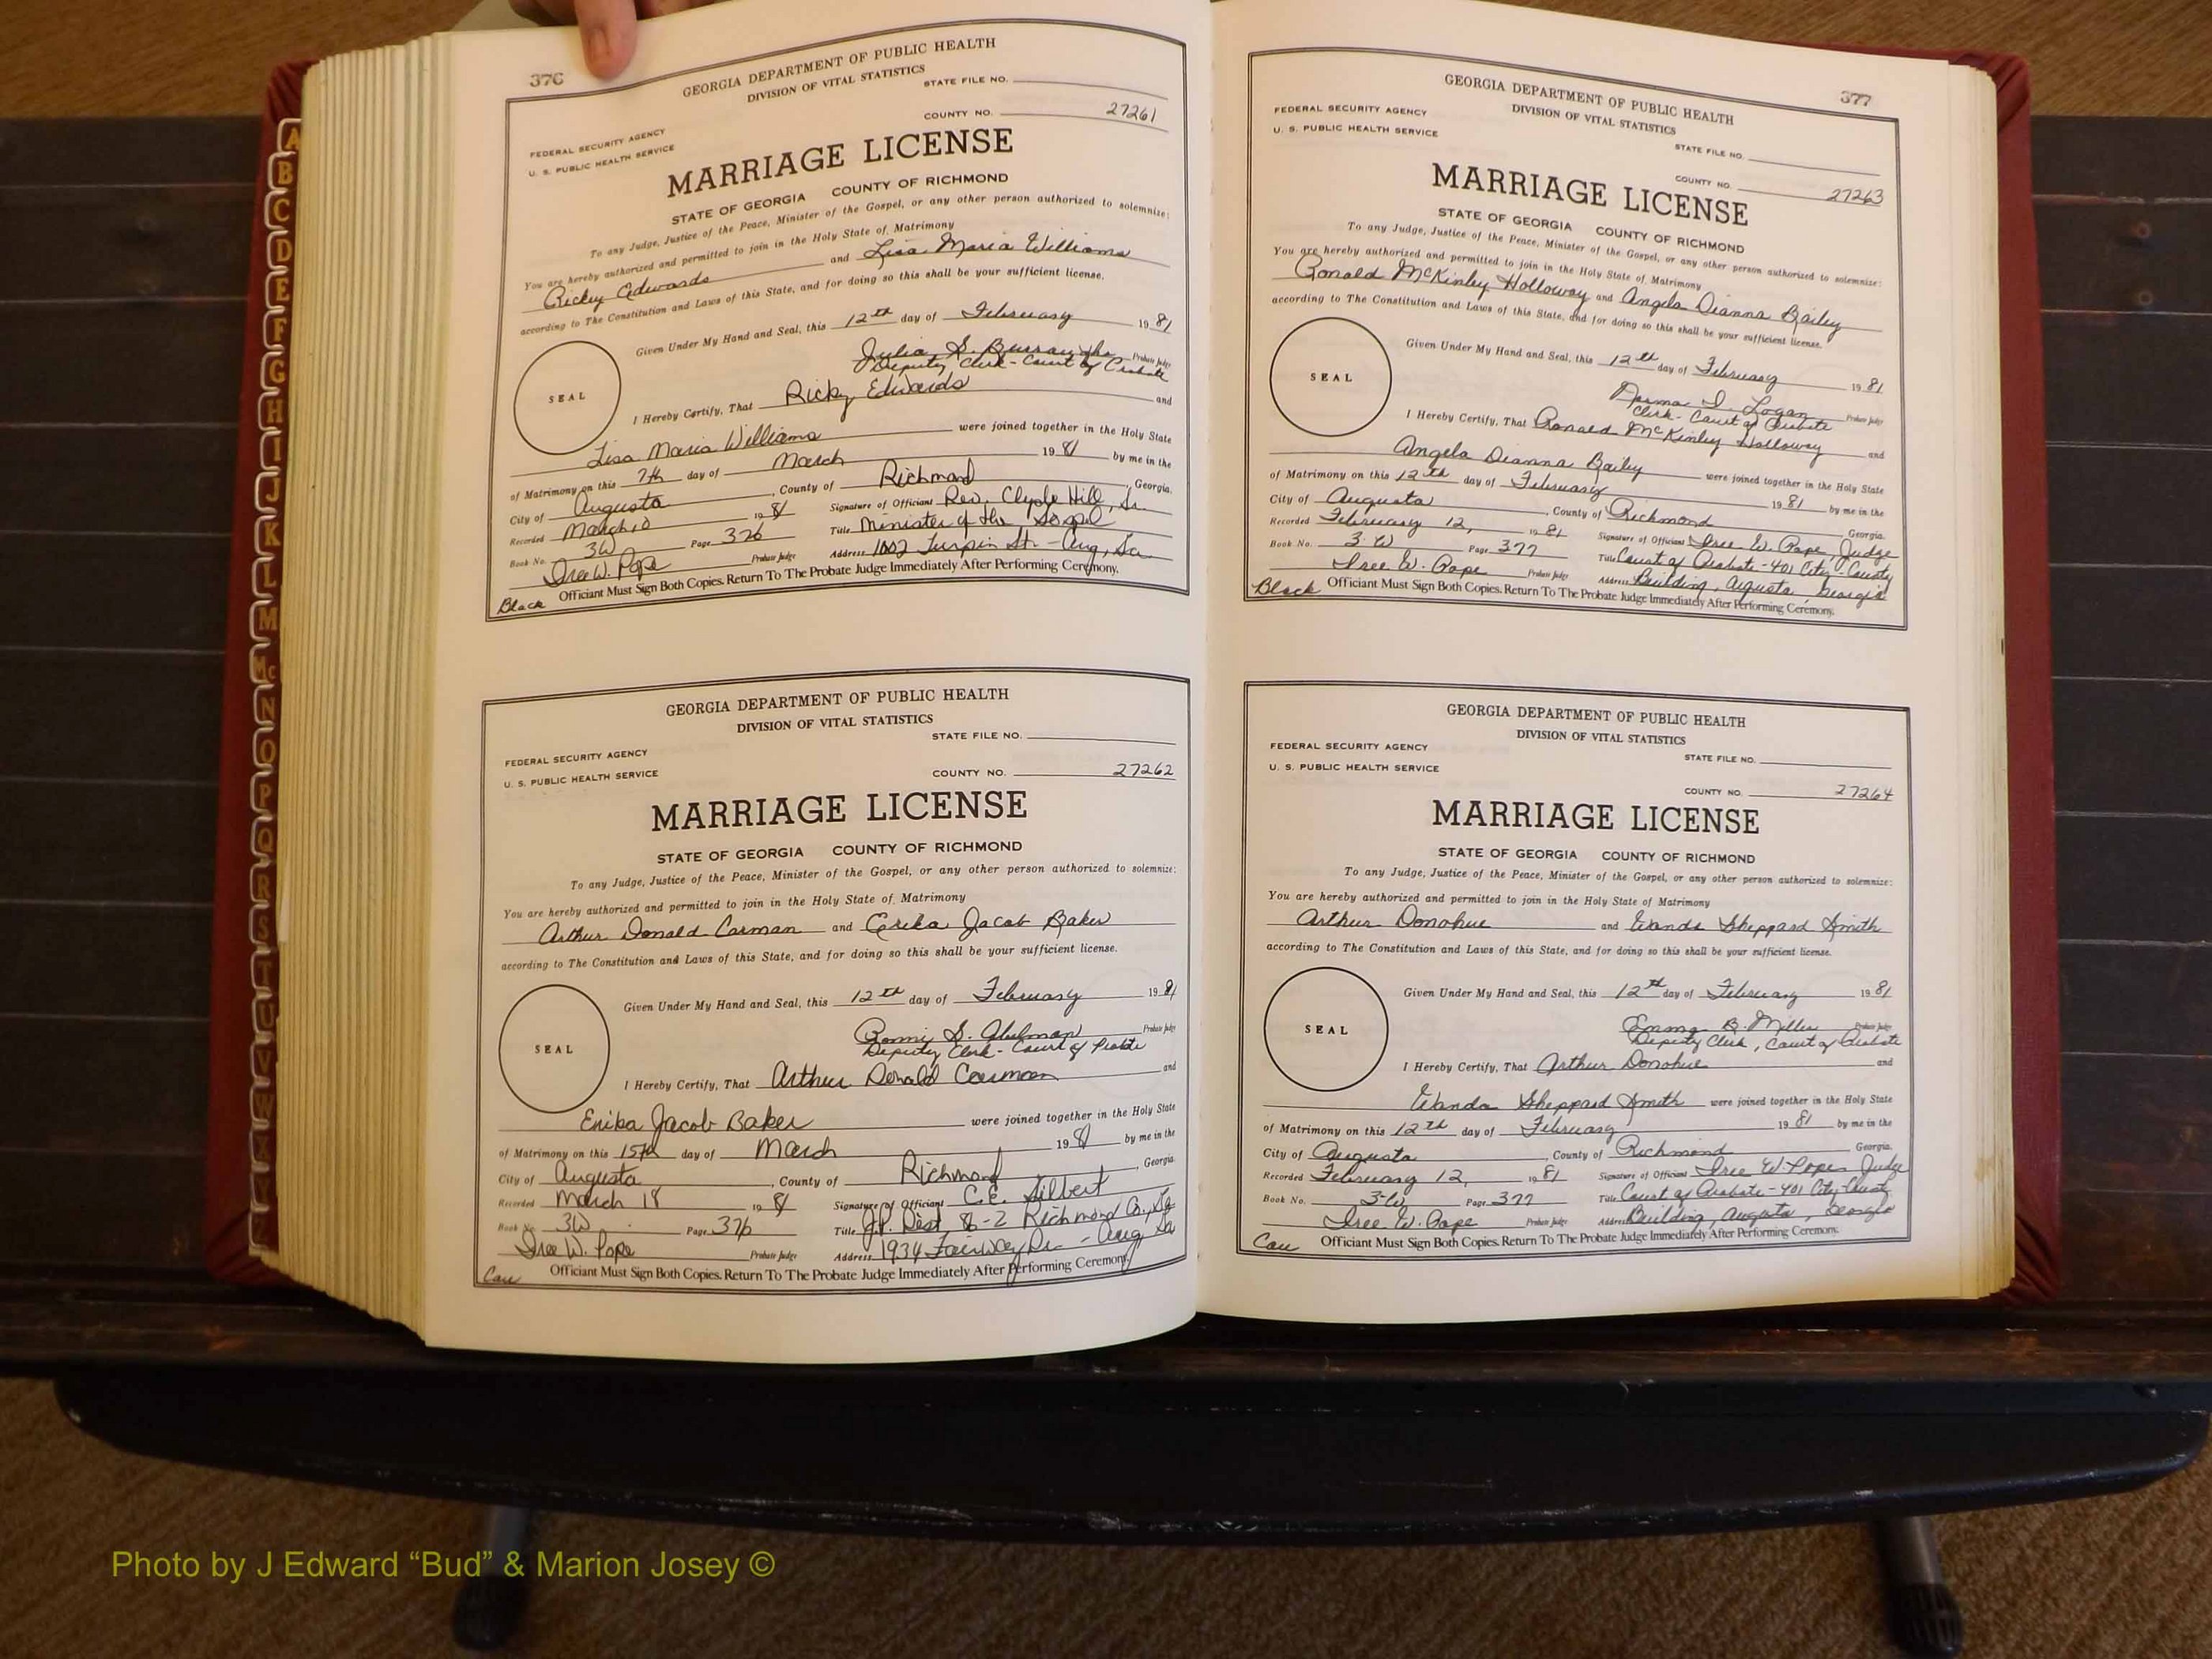 376
GEORGIA DEPARTMENT OF PUBLIC HEALTH
DIVISION OF VITAL STATISTICS
STATE FILE NO.
COUNTY NO. 27261
FEDERAL SECURITY AGENCY
U. S. PUBLIC HEALTH SERVICE
MARRIAGE LICENSE
STATE OF GEORGIA COUNTY OF RICHMOND
To any Judge, Justice of the Peace, Minister of the Gospel, or any other person authorized to solemnize:
You are hereby authorized and permitted to join in the Holy State of Matrimony
Ricky Edwards and Lisa Maria Williams
according to The Constitution and Laws of this State, and for doing so this shall be your sufficient license.
Given Under My Hand and Seal, this 12th day of February 1981
Julia S. Burroughs Probate Judge
Deputy Clerk - Court of Probate
SEAL
I Hereby Certify, That Ricky Edwards and
Lisa Maria Williams were joined together in the Holy State
of Matrimony on this 7th day of March 1981 by me in the
City of Augusta, County of Richmond, Georgia.
Recorded March 10 1981 Signature of Officiant Rev. Clyde Hill, Sr.
Book No. 3W Page 376 Title Minister of the Gospel
Iree W. Pope Probate Judge Address 1002 Turpin St. - Aug, Ga
Officiant Must Sign Both Copies. Return To The Probate Judge Immediately After Performing Ceremony.
Black
GEORGIA DEPARTMENT OF PUBLIC HEALTH
DIVISION OF VITAL STATISTICS
STATE FILE NO.
FEDERAL SECURITY AGENCY
U. S. PUBLIC HEALTH SERVICE
COUNTY NO. 27262
MARRIAGE LICENSE
STATE OF GEORGIA COUNTY OF RICHMOND
To any Judge, Justice of the Peace, Minister of the Gospel, or any other person authorized to solemnize:
You are hereby authorized and permitted to join in the Holy State of Matrimony
Arthur Donald Carman and Erika Jacob Baker
according to The Constitution and Laws of this State, and for doing so this shall be your sufficient license.
Given Under My Hand and Seal, this 12th day of February 1981
S. Probate Judge
Deputy Clerk - Court of Probate
SEAL
I Hereby Certify, That Arthur Donald Carman and
Erika Jacob Baker were joined together in the Holy State
of Matrimony on this 15th day of March 1981 by me in the
City of Augusta, County of Richmond, Georgia.
Recorded March 18 1981 Signature of Officiant C.E. Gilbert
Book No. 3W Page 376 Title J.P. Dist 86-2 Richmond Co., Ga
Iree W. Pope Probate Judge Address 1934 Fairway Dr. - Aug Ga
Officiant Must Sign Both Copies. Return To The Probate Judge Immediately After Performing Ceremony.
Cau
377
GEORGIA DEPARTMENT OF PUBLIC HEALTH
DIVISION OF VITAL STATISTICS
FEDERAL SECURITY AGENCY
U. S. PUBLIC HEALTH SERVICE
STATE FILE NO.
COUNTY NO. 27263
MARRIAGE LICENSE
STATE OF GEORGIA COUNTY OF RICHMOND
To any Judge, Justice of the Peace, Minister of the Gospel, or any other person authorized to solemnize:
You are hereby authorized and permitted to join in the Holy State of Matrimony
Ronald McKinley Holloway and Angela Dianna Bailey
according to The Constitution and Laws of this State, and for doing so this shall be your sufficient license.
Given Under My Hand and Seal, this 12th day of February 1981
Norma I. Logan Probate Judge
Clerk - Court of Probate
SEAL
I Hereby Certify, That Ronald McKinley Holloway and
Angela Dianna Bailey were joined together in the Holy State
of Matrimony on this 12th day of February 1981 by me in the
City of Augusta, County of Richmond Georgia.
Recorded February 12, 1981 Signature of Officiant Iree W. Pope, Judge
Book No. 3-W Page 377 Title Court of Probate - 401 City-County
Iree W. Pope Probate Judge Address Building, Augusta, Georgia
Officiant Must Sign Both Copies. Return To The Probate Judge Immediately After Performing Ceremony.
Black
GEORGIA DEPARTMENT OF PUBLIC HEALTH
DIVISION OF VITAL STATISTICS
FEDERAL SECURITY AGENCY
U. S. PUBLIC HEALTH SERVICE
STATE FILE NO.
COUNTY NO. 27264
MARRIAGE LICENSE
STATE OF GEORGIA COUNTY OF RICHMOND
To any Judge, Justice of the Peace, Minister of the Gospel, or any other person authorized to solemnize:
You are hereby authorized and permitted to join in the Holy State of Matrimony
Arthur Donohue and Wanda Sheppard Smith
according to The Constitution and Laws of this State, and for doing so this shall be your sufficient license.
Given Under My Hand and Seal, this 12th day of February 1981
Emma B. Miller Probate Judge
Deputy Clerk, Court of Probate
SEAL
I Hereby Certify, That Arthur Donohue and
Wanda Sheppard Smith were joined together in the Holy State
of Matrimony on this 12th day of February 1981 by me in the
City of Augusta, County of Richmond Georgia.
Recorded February 12, 1981 Signature of Officiant Iree W. Pope Judge
Book No. 3-W Page 377 Title Court of Probate - 401 City-County
Iree W. Pope Probate Judge Address Building, Augusta, Georgia
Officiant Must Sign Both Copies. Return To The Probate Judge Immediately After Performing Ceremony.
Cau
A
B
C
D
E
F
G
H
I
J
K
L
M
Mc
N
O
P
Q
R
S
T
U
V
W
Photo by J Edward “Bud” & Marion Josey ©